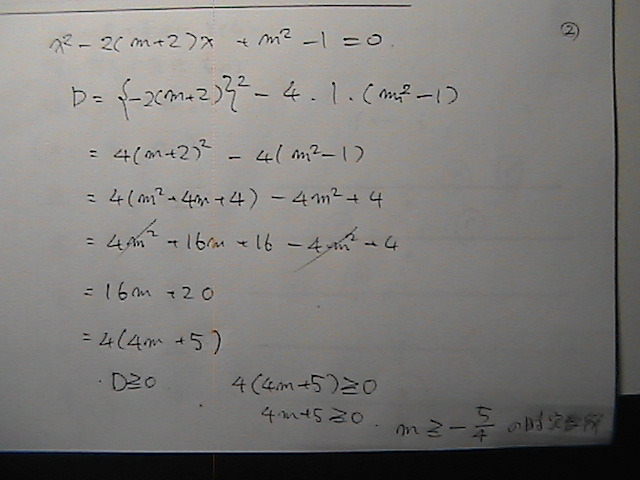 ②
x² - 2(m+2)x + m² - 1 = 0.
D = {-2(m+2)}² - 4 . 1 . (m² - 1)
= 4(m+2)² - 4(m² - 1)
= 4(m² + 4m + 4) - 4m² + 4
= 4m² + 16m + 16 - 4m² + 4
= 16m + 20
= 4(4m + 5)
. D ≧ 0 4(4m+5) ≧ 0
4m+5 ≧ 0 . m ≧ - 5/4 の時実